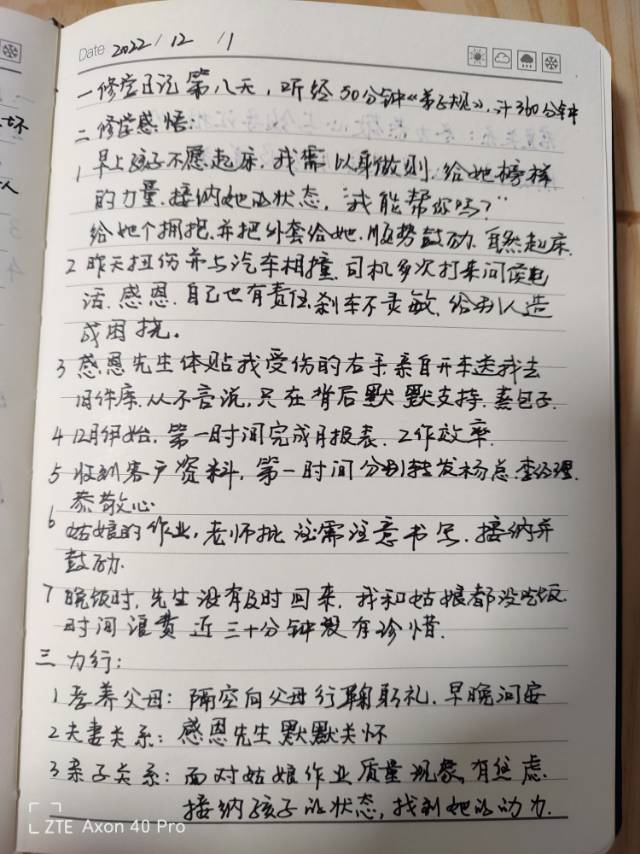 Date 2022/12/1
一 修学日记 第八天，听经50分钟《弟子规》，计360分钟
二 修学感悟：
1 早上孩子不愿起床，我需以身做则，给她榜样
的力量，接纳她的状态，“我能帮你吗？”
给她个拥抱，并把外套给她，顺势鼓励，自然起床.
2 昨天扭伤并与汽车相撞，司机多次打来问候电
话，感恩，自己也有责任，刹车不灵敏，给别人造
成困挠。
3 感恩先生体贴我受伤的右手，亲自开车送我去
旧件库，从不言说，只在背后默默支持，煮包子.
4 12月开始，第一时间完成月报表，工作效率.
5 收到客户资料，第一时间分别转发杨总，李经理.
恭敬心
6 姑娘的作业，老师批注需注意书写，接纳并
鼓励.
7 晚饭时，先生没有及时回来，我和姑娘都没吃饭
时间浪费近三十分钟没有珍惜.
三 力行：
1 孝养父母：隔空向父母行鞠躬礼，早晚问安
2 夫妻关系：感恩先生默默关怀
3 亲子关系：面对姑娘作业质量现象，有焦虑.
接纳孩子的状态，找到她的动力.
ZTE Axon 40 Pro